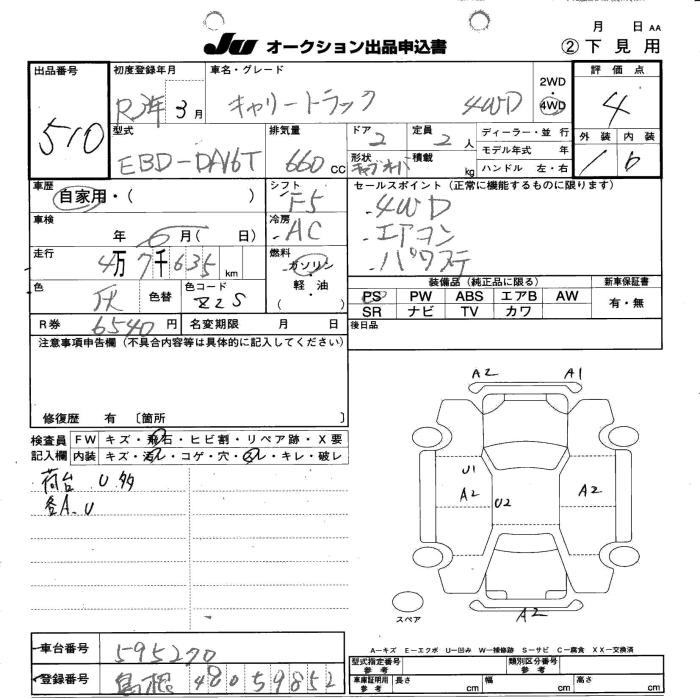 月 日 AA
JU オークション出品申込書 ② 下見用
出品番号 初度登録年月 車名・グレード 2WD・4WD 評価点
510 R3年 3月 キャリートラック 4WD 4
型式 排気量 ドア 定員 ディーラー・並行 外装 内装
EBD-DA16T 660cc 2 2人 モデル年式 年
形状 積載 kg ハンドル 左・右
車歴 シフト セールスポイント(正常に機能するものに限ります)
自家用・( ) F5 ・4WD
車検 冷房 ・エアコン
年 6月( 日) ・AC ・パワステ
走行 4万7千635km 燃料 ガソリン・軽油・( )
装備品(純正品に限る) 新車保証書
色 灰 色替 色コード Z2S
PS PW ABS エアB AW 有・無
SR ナビ TV カワ
R券 6540円 名変期限 月 日 後日品
注意事項申告欄(不具合内容等は具体的に記入してください)
修復歴 有 〔箇所 〕
検査員記入欄 FW キズ・飛石・ヒビ割・リペア跡・X要
内装 キズ・汚レ・コゲ・穴・スレ・キレ・破レ
荷台 U 多
各A、U
A2 A1
U1
A2 U2 A2
A2
スペア
A-キズ E-エクボ U-凹み W-補修跡 S-サビ C-腐食 XX-交換済
車台番号 595270
型式指定番号 参考 類別区分番号 参考
登録番号 島根 480 59852
車庫証明用 参考 長さ cm 幅 cm 高さ cm